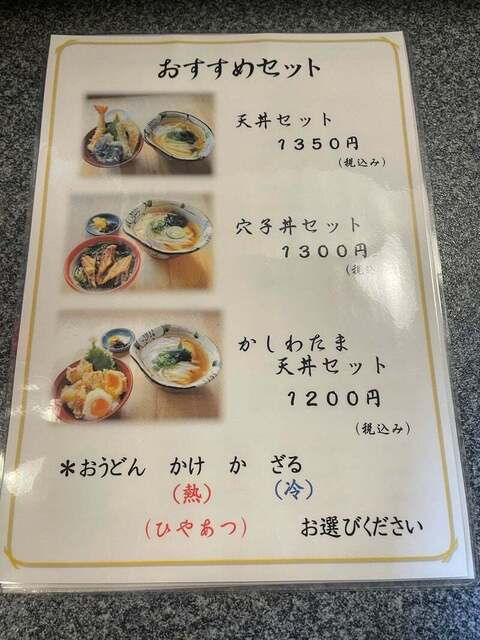 おすすめセット
天丼セット
１３５０円
(税込み)
穴子丼セット
１３００円
(税込
かしわたま
天丼セット
１２００円
(税込み)
＊おうどん　かけ　か　ざる
(熱)　(冷)
(ひやあつ)　お選びください